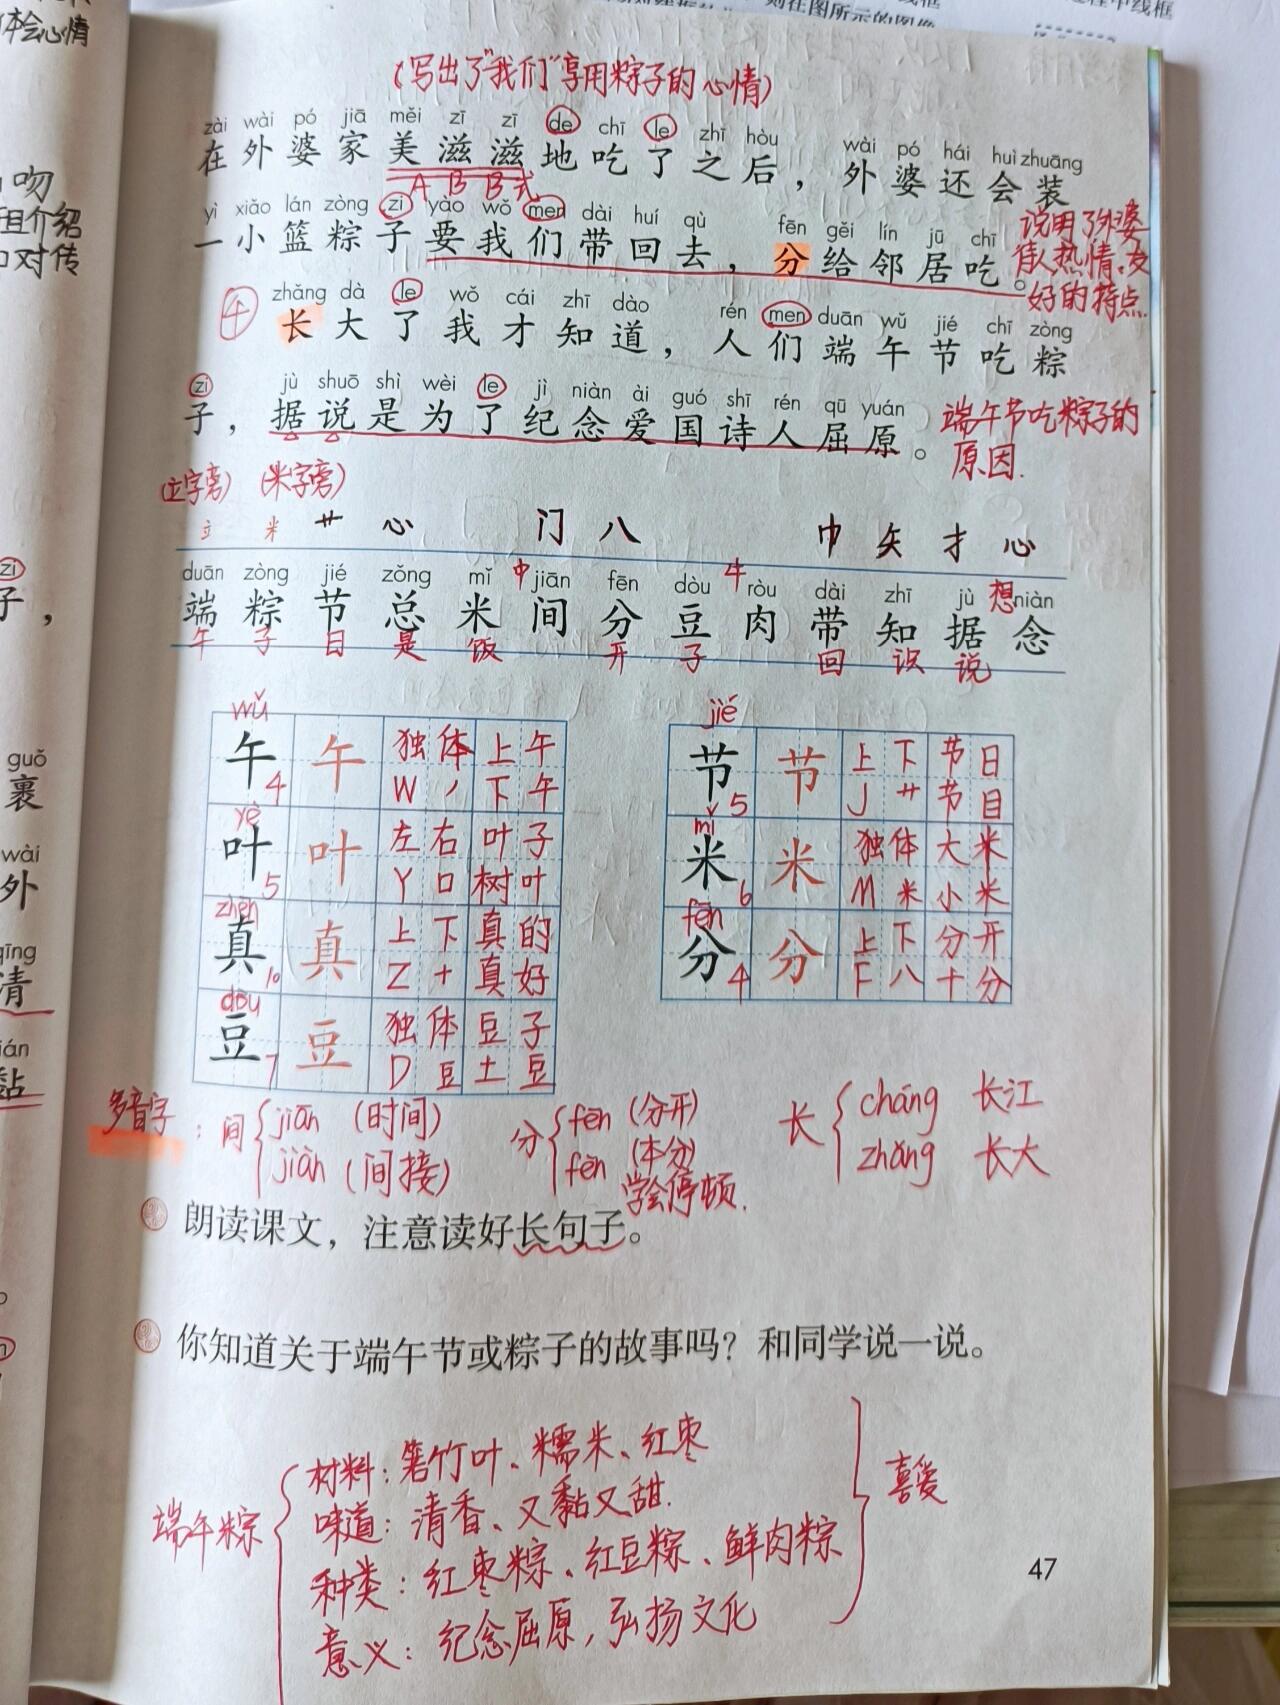 体会心情
(写出了"我们"享用粽子的心情)
zài wài pó jiā měi zī zī de chī le zhī hòu wài pó hái huì zhuāng
在外婆家美滋滋地吃了之后，外婆还会装
A B B 式
yì xiǎo lán zòng zi yào wǒ men dài huí qù fēn gěi lín jū chī
一小篮粽子要我们带回去，分给邻居吃。
说用了外婆
待人热情、友
好的特点
四
zhǎng dà le wǒ cái zhī dào rén men duān wǔ jié chī zòng
长大了我才知道，人们端午节吃粽
zi jù shuō shì wèi le jì niàn ài guó shī rén qū yuán
子，据说是为了纪念爱国诗人屈原。
端午节吃粽子的
原因.
(立字旁) (米字旁)
立 米 艹 心 门 八 巾 矢 扌 心
duān zòng jié zǒng mǐ jiān fēn dòu ròu dài zhī jù niàn
端 粽 节 总 米 中间 分 豆 牛肉 带 知 据 想念
午 子 日 是 饭 开 子 回 识 说
wǔ jié
午 4 午 独体 上午 节 5 节 上下 节日
W 丿 下午 J 艹 节目
yè mǐ
叶 5 叶 左右 叶子 米 6 米 独体 大米
Y 口 树叶 M 米 小米
zhēn fēn
真 10 真 上下 真的 分 4 分 上下 分开
Z 十 真好 F 八 十分
dòu
豆 7 豆 独体 豆子
D 豆 土豆
多音字：间 jiān (时间) jiàn (间接)
分 fēn (分开) fèn (本分)
长 cháng 长江 zhǎng 长大
学会停顿.
朗读课文，注意读好长句子。
你知道关于端午节或粽子的故事吗？和同学说一说。
端午粽
材料：箬竹叶、糯米、红枣
味道：清香、又黏又甜.
种类：红枣粽、红豆粽、鲜肉粽
意义：纪念屈原，弘扬文化
喜爱
47